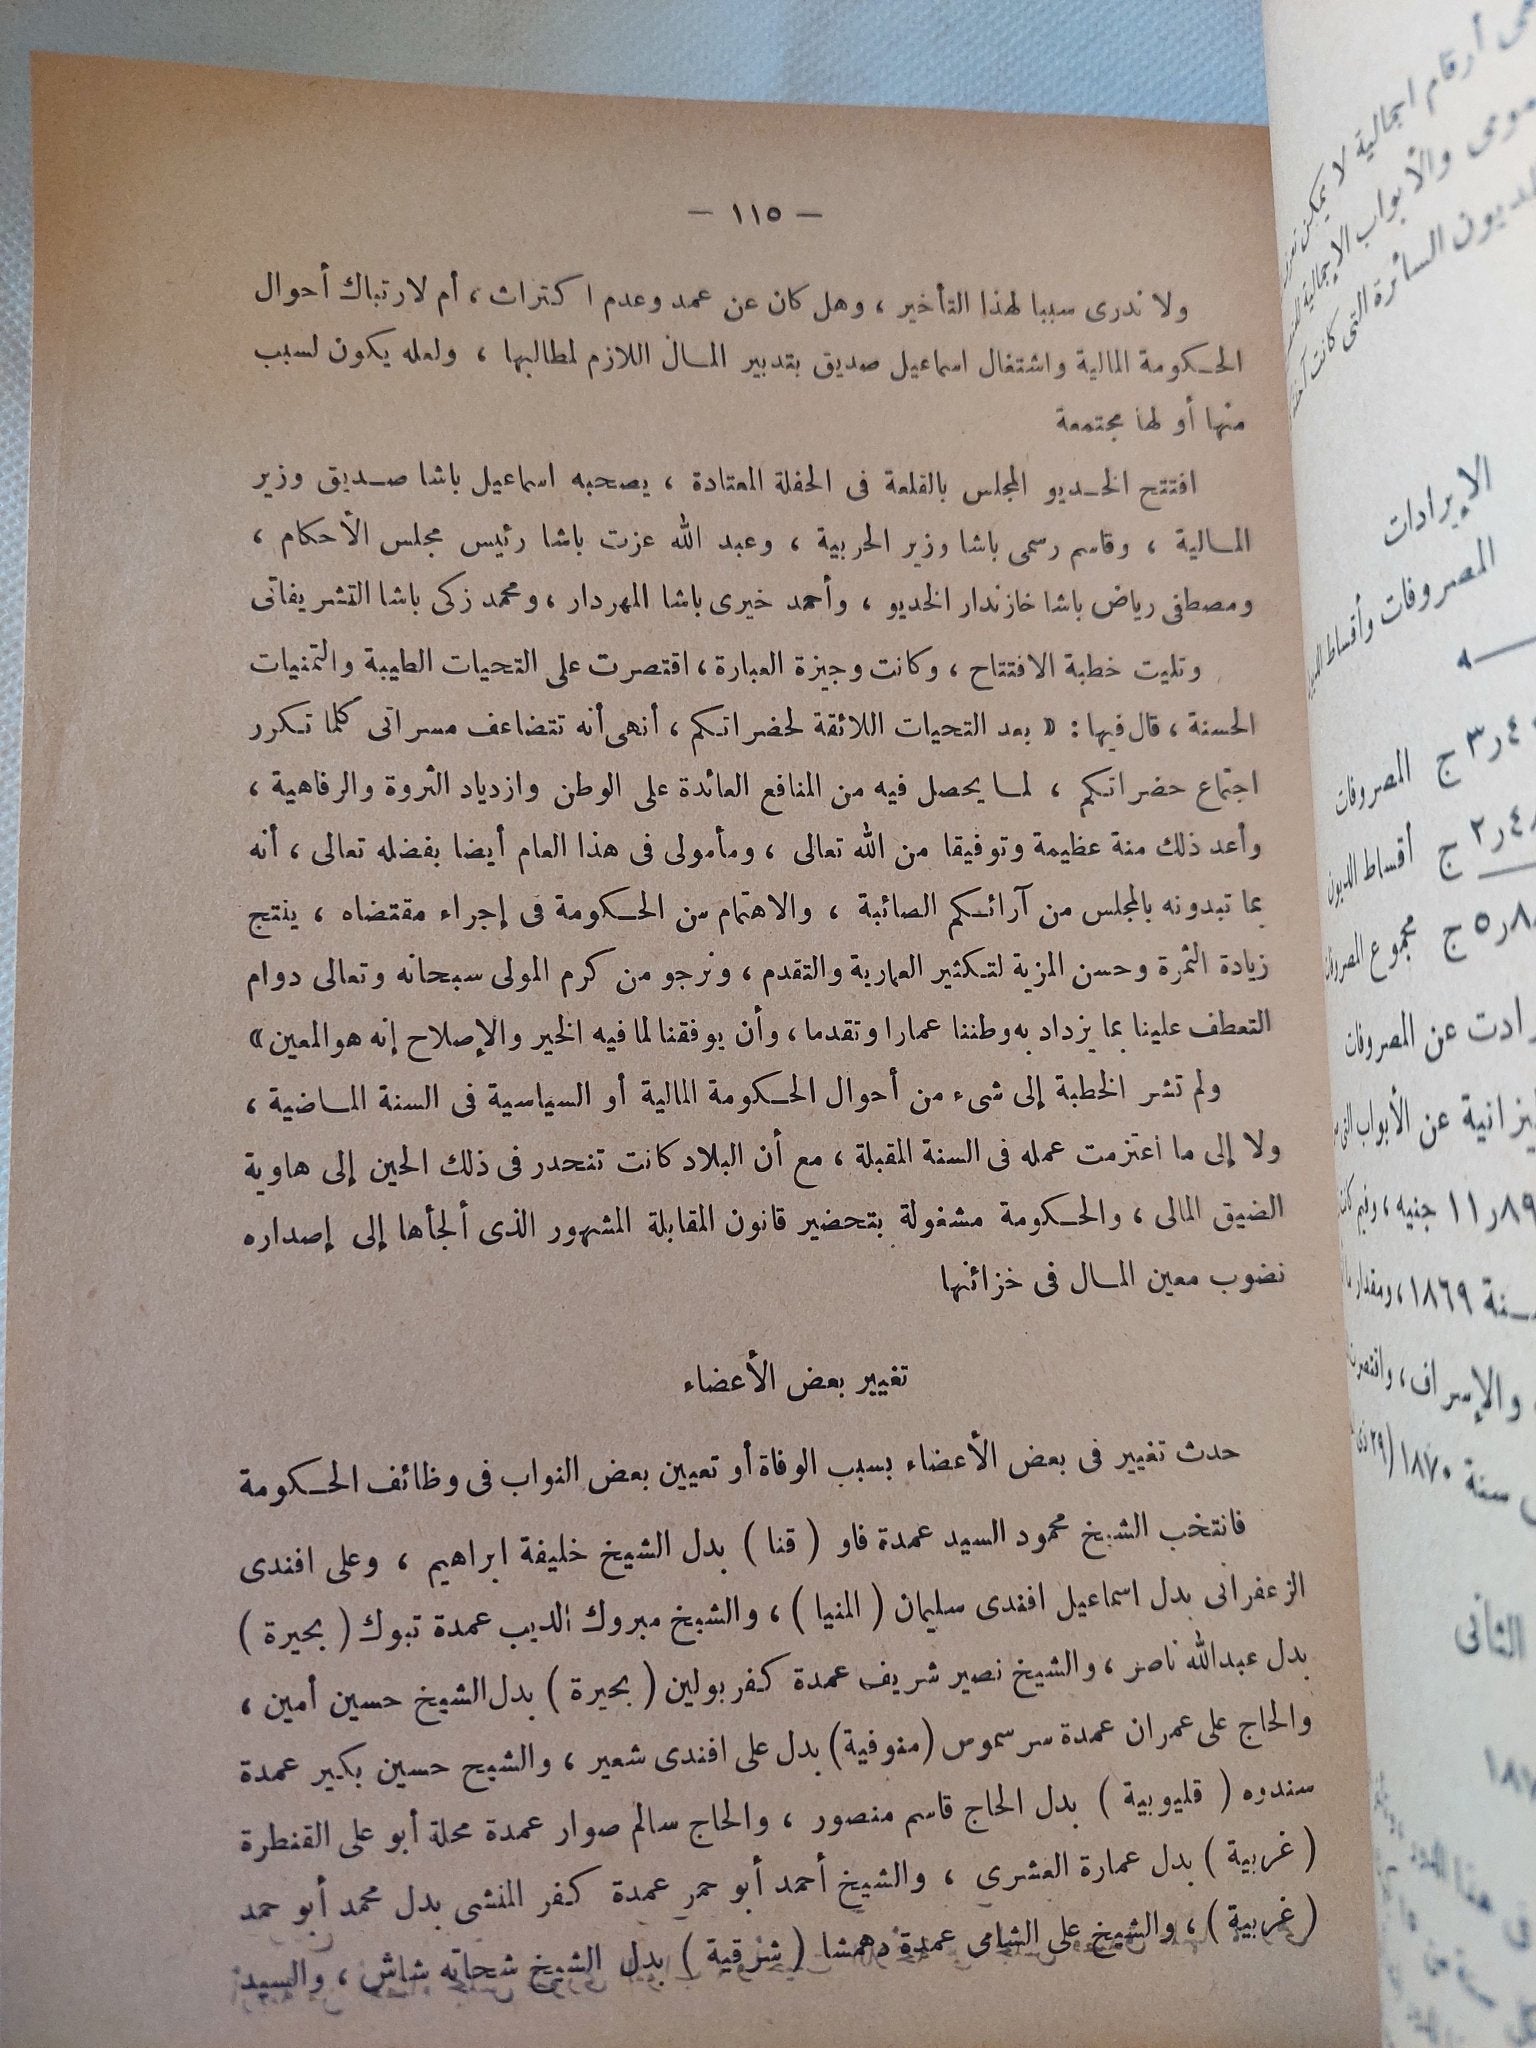 — ١١٥ —
ولا ندرى سببا لهذا التأخير ، وهل كان عن عمد وعدم اكتراث ، أم لارتباك أحوال
الحكومة المالية واشتغال اسماعيل صديق بتدبير المال اللازم لمطالبها ، ولعله يكون لسبب
منها أو لها مجتمعة
افتتح الخديو المجلس بالقلعة فى الحفلة المعتادة ، يصحبه اسماعيل باشا صديق وزير
المالية ، وقاسم رسمى باشا وزير الحربية ، وعبد الله عزت باشا رئيس مجلس الأحكام ،
ومصطفى رياض باشا خازندار الخديو ، وأحمد خيرى باشا المهردار ، ومحمد زكى باشا التشريفاتى
وتليت خطبة الافتتاح ، وكانت وجيزة العبارة ، اقتصرت على التحيات الطيبة والتمنيات
الحسنة ، قال فيها : « بعد التحيات اللائقة لحضراتكم ، أنهى أنه تتضاعف مسراتى كلما تكرر
اجتماع حضراتكم ، لما يحصل فيه من المنافع العائدة على الوطن وازدياد الثروة والرفاهية ،
وأعد ذلك منة عظيمة وتوفيقا من الله تعالى ، ومأمولى فى هذا العام أيضا بفضله تعالى ، أنه
بما تبدونه بالمجلس من آرائكم الصائبة ، والاهتمام من الحكومة فى إجراء مقتضاه ، ينتج
زيادة الثمرة وحسن المزية لتكثير العمارية والتقدم ، ونرجو من كرم المولى سبحانه وتعالى دوام
التعطف علينا بما يزداد به وطننا عمارا وتقدما ، وأن يوفقنا لما فيه الخير والإصلاح إنه هو المعين »
ولم تشر الخطبة إلى شىء من أحوال الحكومة المالية أو السياسية فى السنة الماضية ،
ولا إلى ما اعتزمت عمله فى السنة المقبلة ، مع أن البلاد كانت تنحدر فى ذلك الحين إلى هاوية
الضيق المالى ، والحكومة مشغولة بتحضير قانون المقابلة المشهور الذى ألجأها إلى إصداره
نضوب معين المال فى خزائنها
تغيير بعض الأعضاء
حدث تغيير فى بعض الأعضاء بسبب الوفاة أو تعيين بعض النواب فى وظائف الحكومة
فانتخب الشيخ محمود السيد عمدة فاو ( قنا ) بدل الشيخ خليفة ابراهيم ، وعلى افندى
الزعفرانى بدل اسماعيل افندى سليمان ( المنيا ) ، والشيخ مبروك الديب عمدة تبوك ( بحيرة )
بدل عبد الله ناصر ، والشيخ نصير شريف عمدة كفر بولين ( بحيرة ) بدل الشيخ حسين أمين ،
والحاج على عمران عمدة سرسموس ( منوفية ) بدل على افندى شعير ، والشيح حسين بكير عمدة
سندوه ( قليوبية ) بدل الحاج قاسم منصور ، والحاج سالم صوار عمدة محلة أبو على القنطرة
( غربية ) بدل عمارة العشرى ، والشيخ أحمد أبو حمر عمدة كفر المنشى بدل محمد أبو حمد
( غربية ) ، والشيخ على الشامى عمدة دهمشا ( شرقية ) بدل الشيخ شحاته شاش ، والسيد
أرقام اجمالية لا يمكن
والأبواب الإجمالية
الديون السائرة التى كانت
الإيرادات
المصروفات وأقساط
ج المصروفات
ج أقساط الديون
ج مجموع
عن المصروفات
عن الأبواب
جنيه ،
١٨٦٩ ، ومقدار
والإسراف ،
سنة ١٨٧٠
الثانى